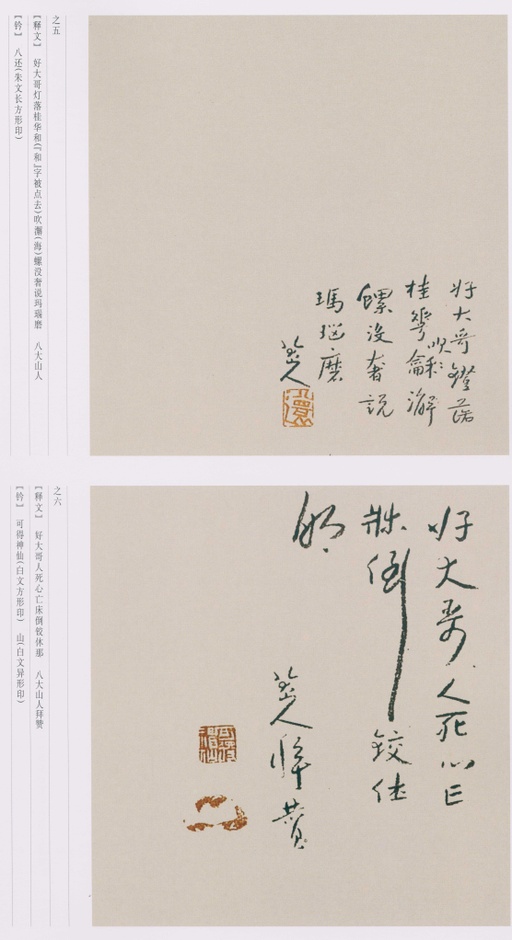 好大哥鐙落
桂華龢吹澥
螺没奢説
瑪瑙磨
八大山人
八還
之五
【释文】 好大哥灯落桂华和(『和』字被点去)吹澥(海)螺没奢说玛瑙磨 八大山人
【钤】 八还(朱文长方形印)
好大哥人死心亡
牀倒鉸休
那
八大山人拜賛
可得神仙
之六
【释文】 好大哥人死心亡床倒铰休那 八大山人拜赞
【钤】 可得神仙(白文方形印) 山(白文异形印)